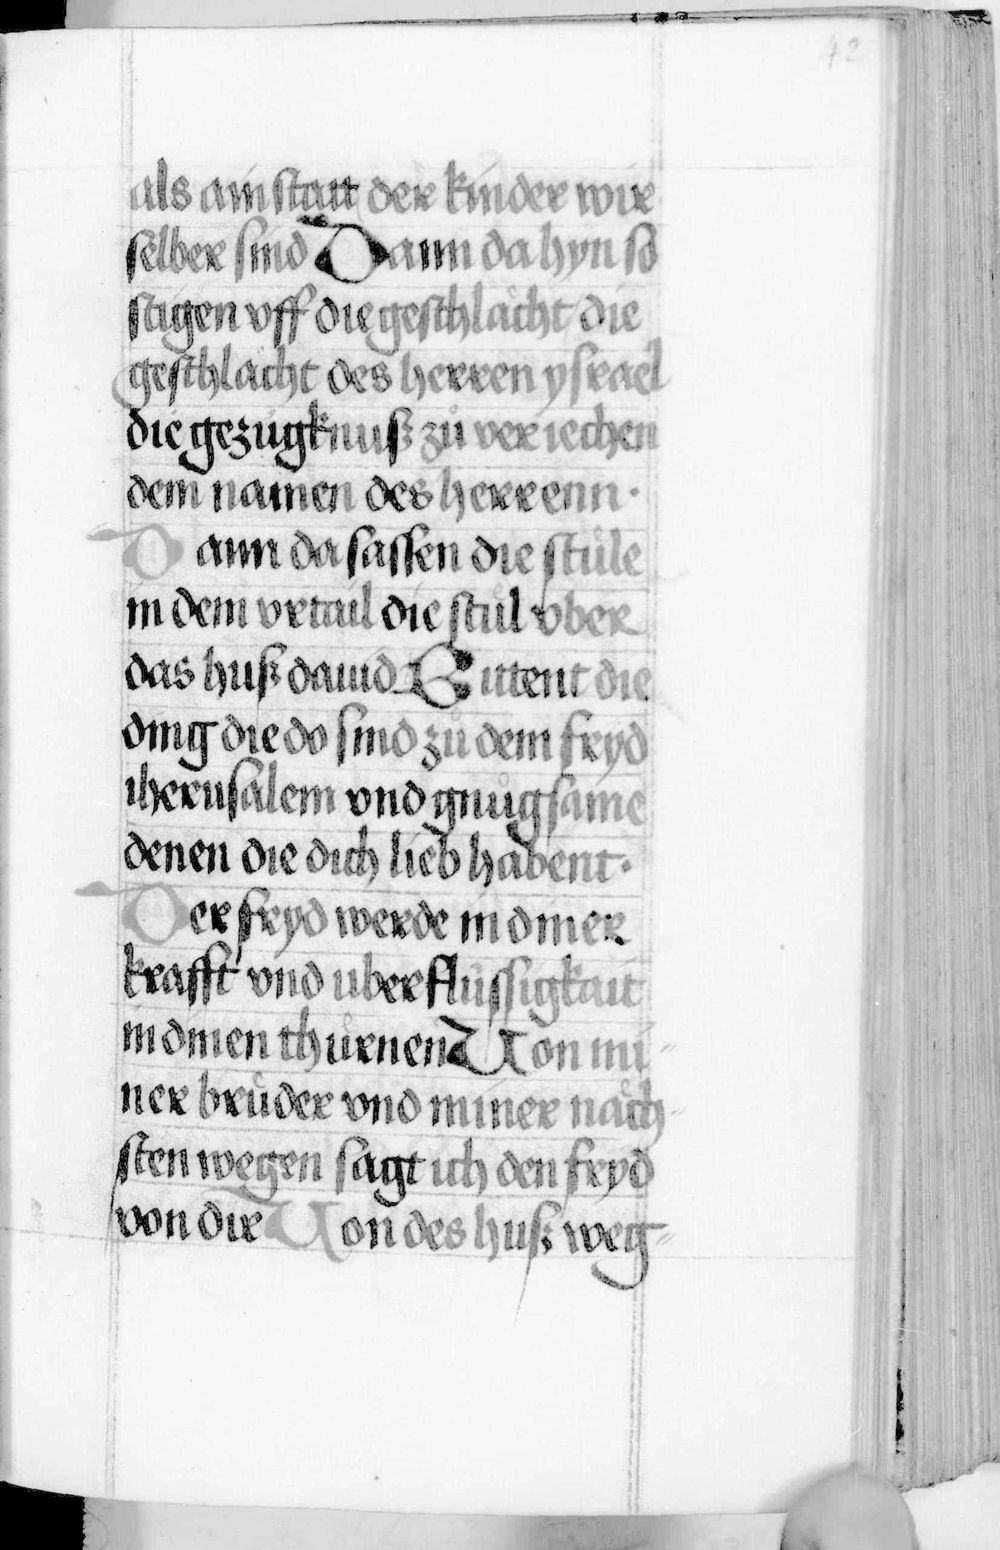 42
als ain statt der kinder wir
selber sind Dann da hyn so
stigen vff die geschlächt die
geschlächt des herren ysrael
die gezügknuß zů veriechen
dem namen des herrenn·
Dann da sassen die stůle
in dem vrtail die stůl vber
das huß dauid Bittent die
ding die do sind zů dem fryd
iherusalem vnd gnůgsame
denen die dich lieb habent·
Der fryd werde in diner
krafft vnd uberflüssigkait
in dinen thürnen Von mi-
ner brůder vnd miner näch-
sten wegen sagt ich den fryd
von dir Von des huß weg-